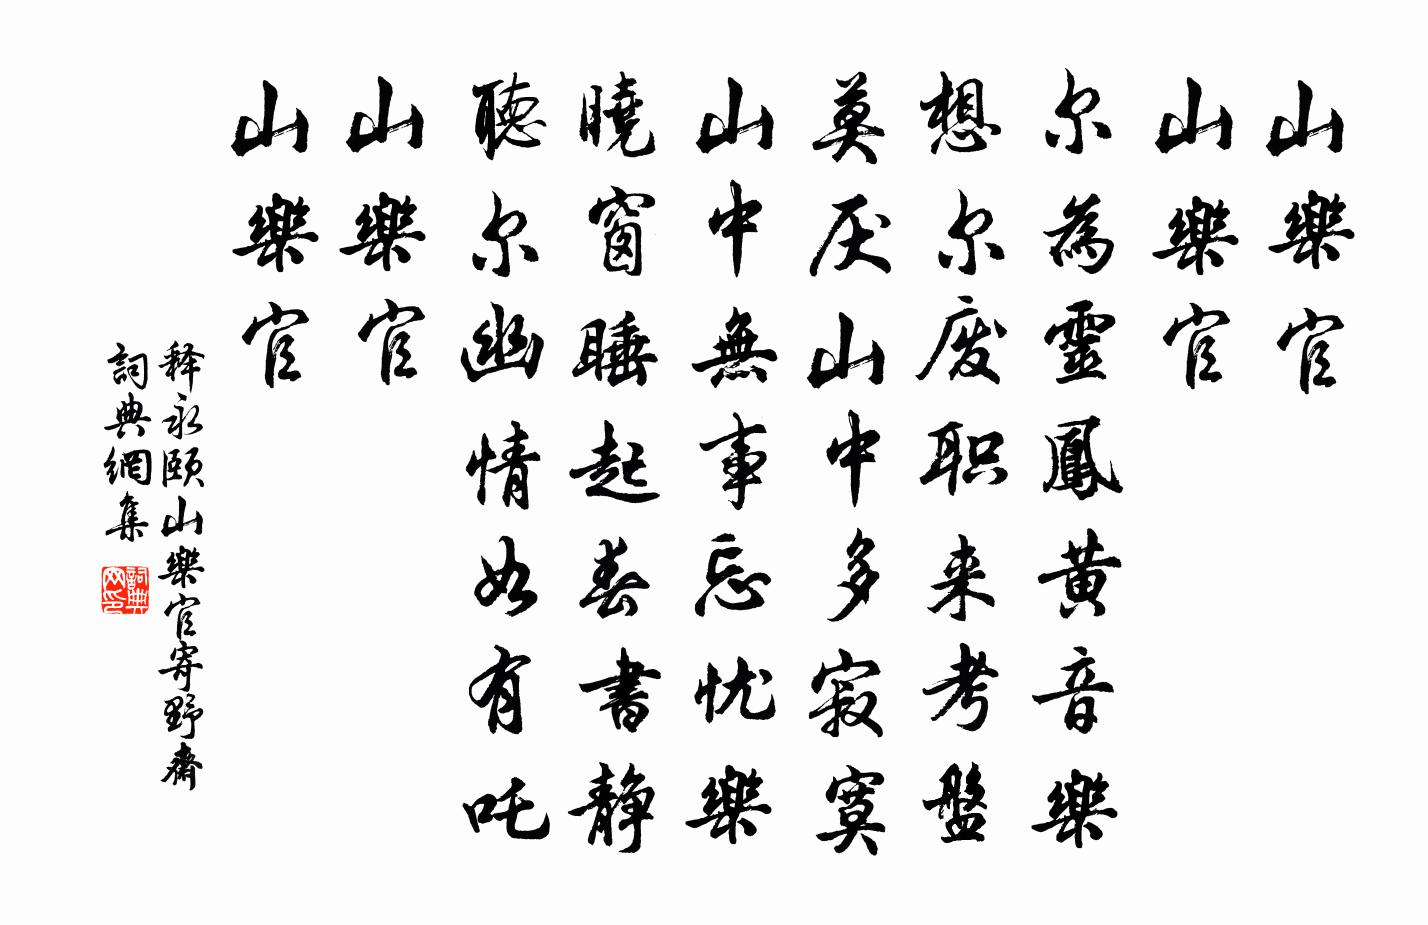 山樂官
山樂官
尔為靈鳳黄音樂
想尔废职来考盤
莫厌山中多寂寞
山中無事忘忧樂
曉窗睡起春書静
聽尔幽情如有吒
山樂官
山樂官
释永颐山樂官寄野齋
詞典網集
詞典
网印